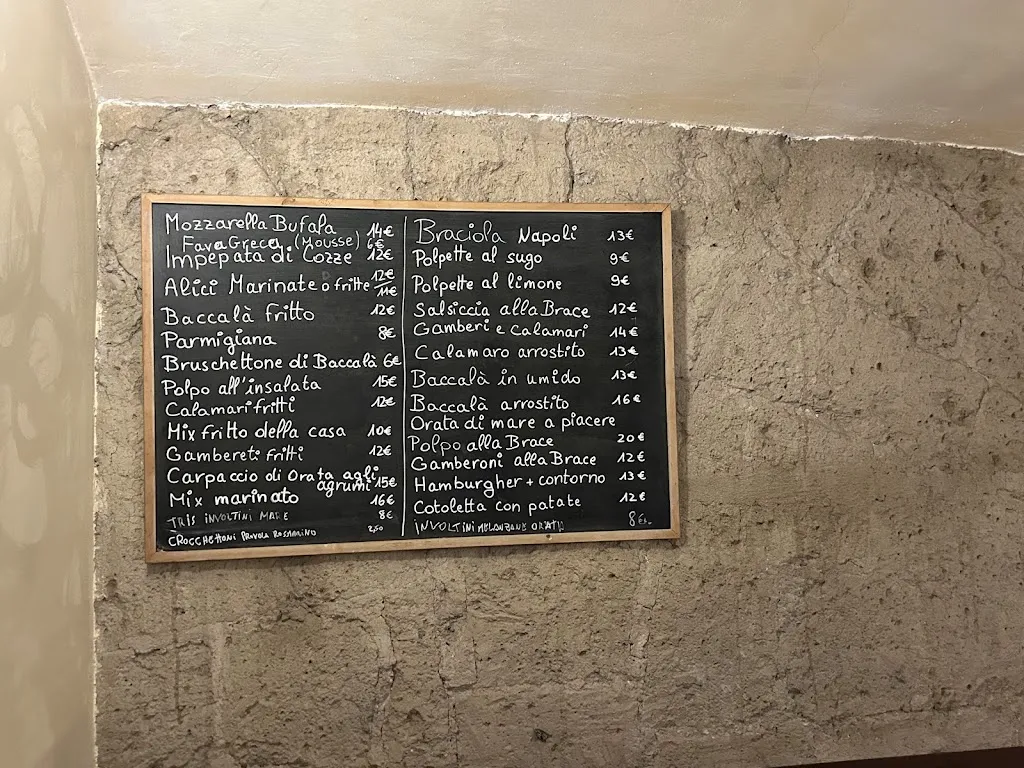 Mozzarella Bufala 14€
Fava Greca (Mousse) 6€
Impepata di Cozze 12€
Alici Marinate o fritte 12€ 11€
Baccalà fritto 12€
Parmigiana 8€
Bruschettone di Baccalà 6€
Polpo all'insalata 15€
Calamari fritti 12€
Mix fritto della casa 10€
Gambereti fritti 12€
Carpaccio di Orata agli
agrumi 15€
Mix marinato 16€
TRIS INVOLTINI MARE 8€
CROCCHETTONI PROVOLA ROSMARINO 2,50
Braciola Napoli 13€
Polpette al sugo 9€
Polpette al limone 9€
Salsiccia alla Brace 12€
Gamberi e calamari 14€
Calamaro arrostito 13€
Baccalà in umido 13€
Baccalà arrostito 16€
Orata di mare a piacere
Polpo alla Brace 20€
Gamberoni alla Brace 12€
Hamburgher + contorno 13€
Cotoletta con patate 12€
INVOLTINI MELANZANE ORATA 8€